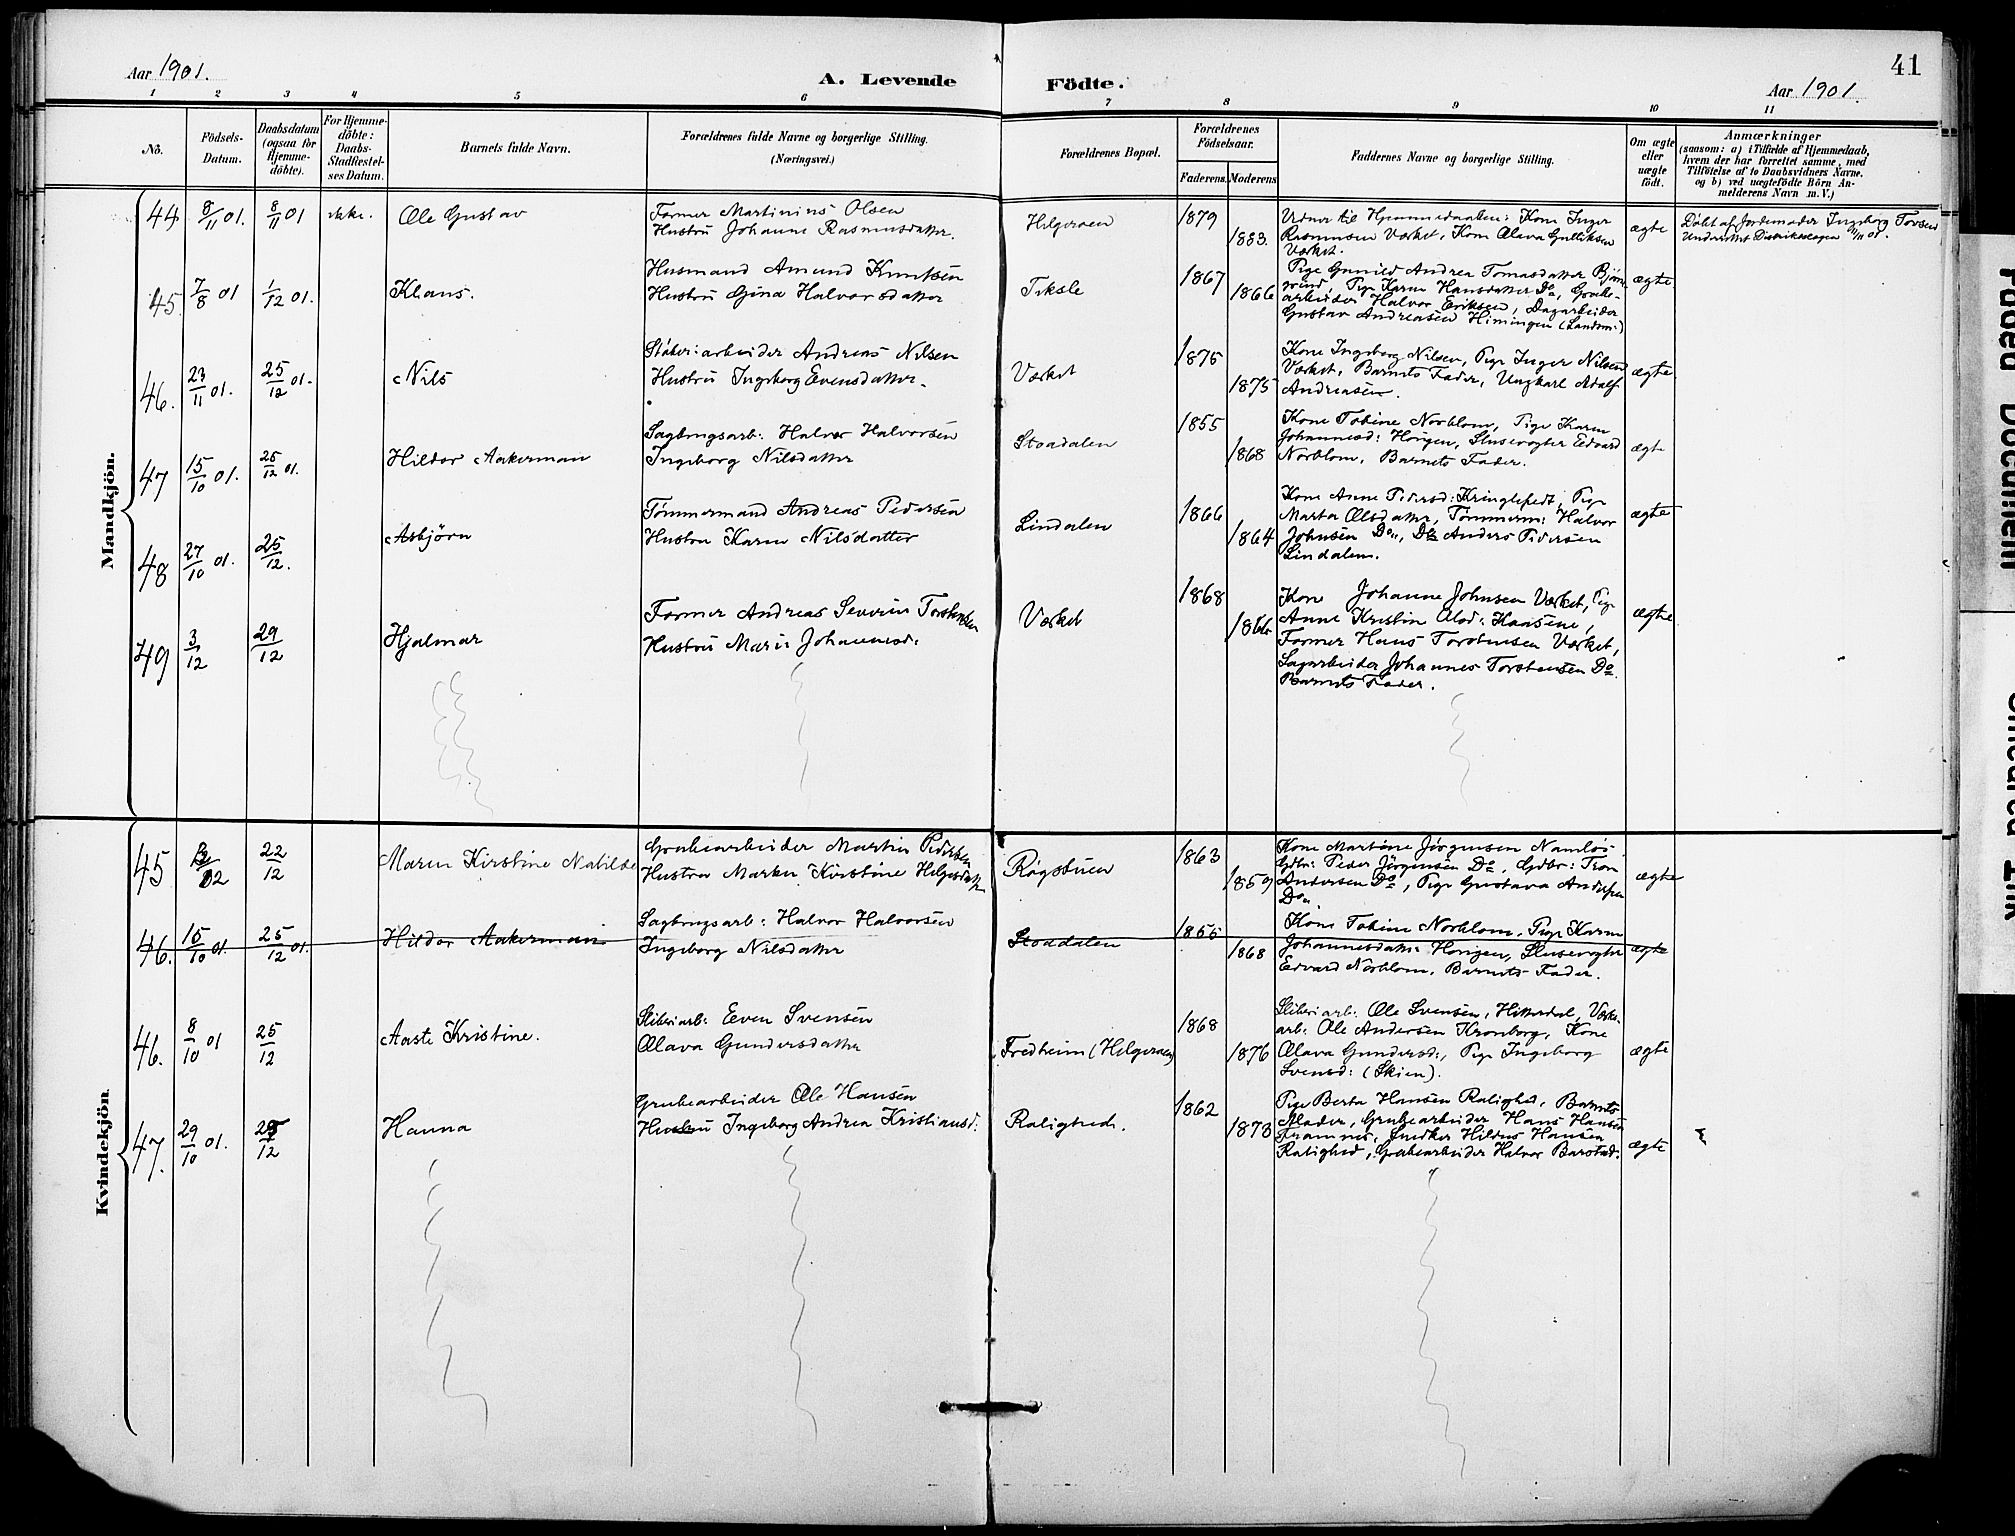 Aar 1901.
A. Levende Födte.
Aar 1901.
41
1 2 3 4 5 6 7 8 9 10 11
No.
Födsels-
Datum.
Daabsdatum
(ogsaa for
Hjemme-
döbte).
For Hjemme-
döbte:
Daabs-
Stadfæstel-
ses Datum.
Barnets fulde Navn.
Forældrenes fulde Navne og borgerlige Stilling.
(Næringsvei.)
Forældrenes Bopæl.
Forældrenes
Födselsaar.
Faderens. Moderens.
Faddernes Navne og borgerlige Stilling.
Om ægte
eller
uægte
födt.
Anmærkninger
(saasom: a) i Tilfælde af Hjemmedaab,
hvem der har forrettet samme, med
Tilföielse af to Daabsvidners Navne.
og b) ved uægtefödte Börn An-
melderens Navn m. V.)
Mandkjön.
44 8/11 01. 8/11 01 ikke. Ole Gustav
Former Martinius Olsen
Hustru Johanne Rasmusdatter.
Helgeraen
1879
1883.
Vidner til Hjemmedaaben: Kone Inger
Rasmussen Værket, Kone Olava Gulliksen
Værket.
ægte
Döbt af Jordemoder Ingeborg Tovsen
45. 7/8 01 1/12 01. Klaus.
Husmand Amund Knutsen
Hustru Gina Halvorsdatter
Teksle
1867
1866
Pige Gunild Andrea Tomasdatter Bjørn-
Pige Karen Hansdatter Do, Grube-
arbeider Halvor Eriksen, Dagarbeider
Gustav Andreasen Himingen
ægte
46. 23/11 01. 25/12 01. Nils
Andreas Nilsen
Hustru Ingeborg Evensdatter.
Værket
1875
1875
Kone Ingeborg Nilsen, Pige Inger Nilsen
Værket, Barnets Fader, Ungkarl Adolf
Andreasen.
ægte
47 15/10 01. 25/12 01. Hildor Aakerman
Sagbrugsarb: Halvor Halvorsen
Ingeborg Nilsdatter
Stoadalen
1855
1868
Kone Tobine Norblom, Pige Karen
Johannesd: Horgen, Slusevogter Edvard
Norblom, Barnets Fader.
ægte
48 27/10 01. 25/12. Asbjörn
Tömmermand Andreas Pedersen
Hustru Karen Nilsdatter
Lindalen
1866
1864
Kone Anne Pedersd: Kringlefedt, Pige
Marta Olsdatter, Tömmerm: Halvor
Johnsen Do, Do Anders Pedersen
Lindalen.
ægte
49 3/12 29/12 Hjalmar
Former Andreas Severin Torstensen
Hustru Marie Johannesd:
Værket
1868
1866
Kone Johanne Johnsen Værket, Pige
Anne Kristin Olsd: Kaasene,
Former Hans Torstensen Værket,
Sagarbeider Johannes Torstensen Do.
Barnets Fader.
ægte
Kvindekjön
45 22/12 Maren Kirstine Matilde
Grubearbeider Martin Pedersen
Hustru Maren Kirstine Helgesdatter
Røgstuen
1863
1859
Kone Martine Jörgensen Namlös
Gdbr: Peder Jörgensen Do, Gdbr: Tron
Andersen Do, Pige Gustava Andersen
Do.
ægte
46. 15/10 01. 25/12 01. Hildor Aakerman
Sagbrugsarb: Halvor Halvorsen
Ingeborg Nilsdatter
Stoadalen
1855
1868
Kone Tobine Norblom, Pige Karen
Johannesdatter Horgen, Slusevogter
Edvard Norblom, Barnets Fader.
ægte
46. 8/10 01 25/12 Aaste Kristine.
Sliberiarb: Even Svensen
Olava Gundersdatter
Fredheim (Helgeraen)
1868
1876
Sliberiarb: Ole Svensen, Hitterdal, Værks-
arb: Ole Andersen Kronborg, Kone
Olava Gundersd:, Pige Ingeborg
Svensd: (Skien).
ægte
47. 29/10 01. 25/12 Hanna
Grubearbeider Ole Hansen
Hustru Ingeborg Andrea Kristiansd.
Ralighed.
1862
1873
Pige Berta Hansen Ralighed, Barnets
Moder, Grubearbeider Hans Hansen
Framnes, Snedker Hildus Hansen
Ralighed, Grubearbeider Halvor Barstad.
ægte